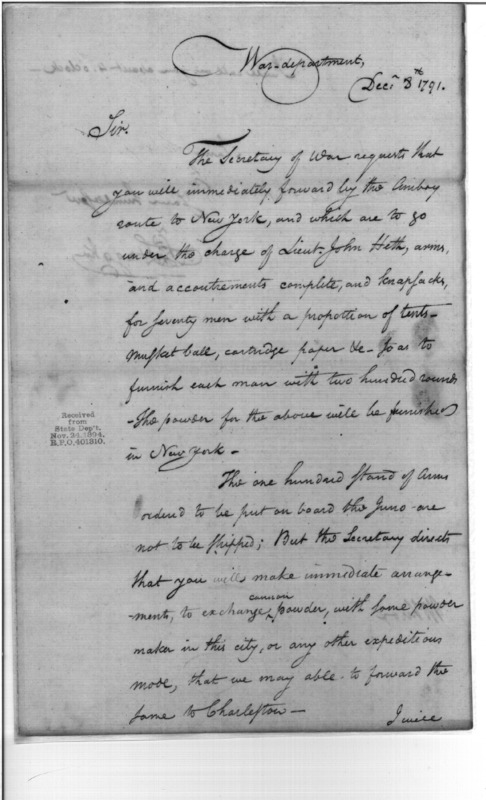 War-department,
Decr 8th 1791.
Sir.
The Secretary of War requests that
you will immediately forward by the Amboy
route to New York, and which are to go
under the charge of Lieut. John Heth, arms,
and accoutrements complete, and knapsacks,
for seventy men with a proportion of tents-
musket ball, cartridge paper &c- so as to
furnish each man with two hundred rounds
-The powder for the above will be furnished
in New York-
The one hundred stand of Arms
ordered to be put on board the Juno are
not to be shipped; But the Secretary directs
that you will make immediate arrange-
-ments, to exchange cannon powder, with some powder
maker in this city, or any other expeditious
mode, that we may able to forward the
same to Charleston-
I will
Received
from
State Dep't.
Nov. 24, 1894,
R.P.O. 401210.